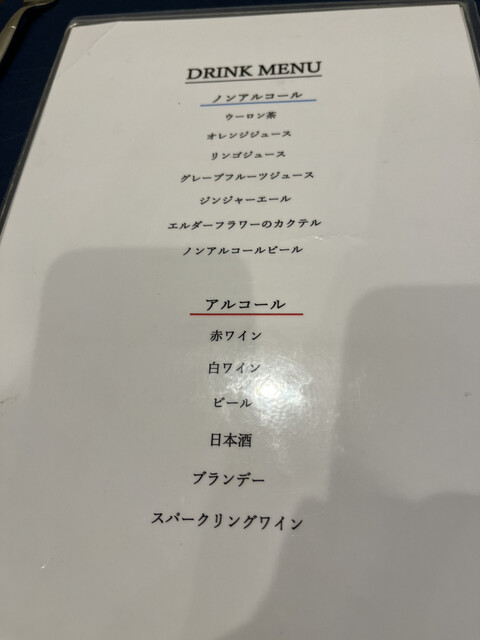 DRINK MENU
ノンアルコール
ウーロン茶
オレンジジュース
リンゴジュース
グレープフルーツジュース
ジンジャーエール
エルダーフラワーのカクテル
ノンアルコールビール
アルコール
赤ワイン
白ワイン
ビール
日本酒
ブランデー
スパークリングワイン